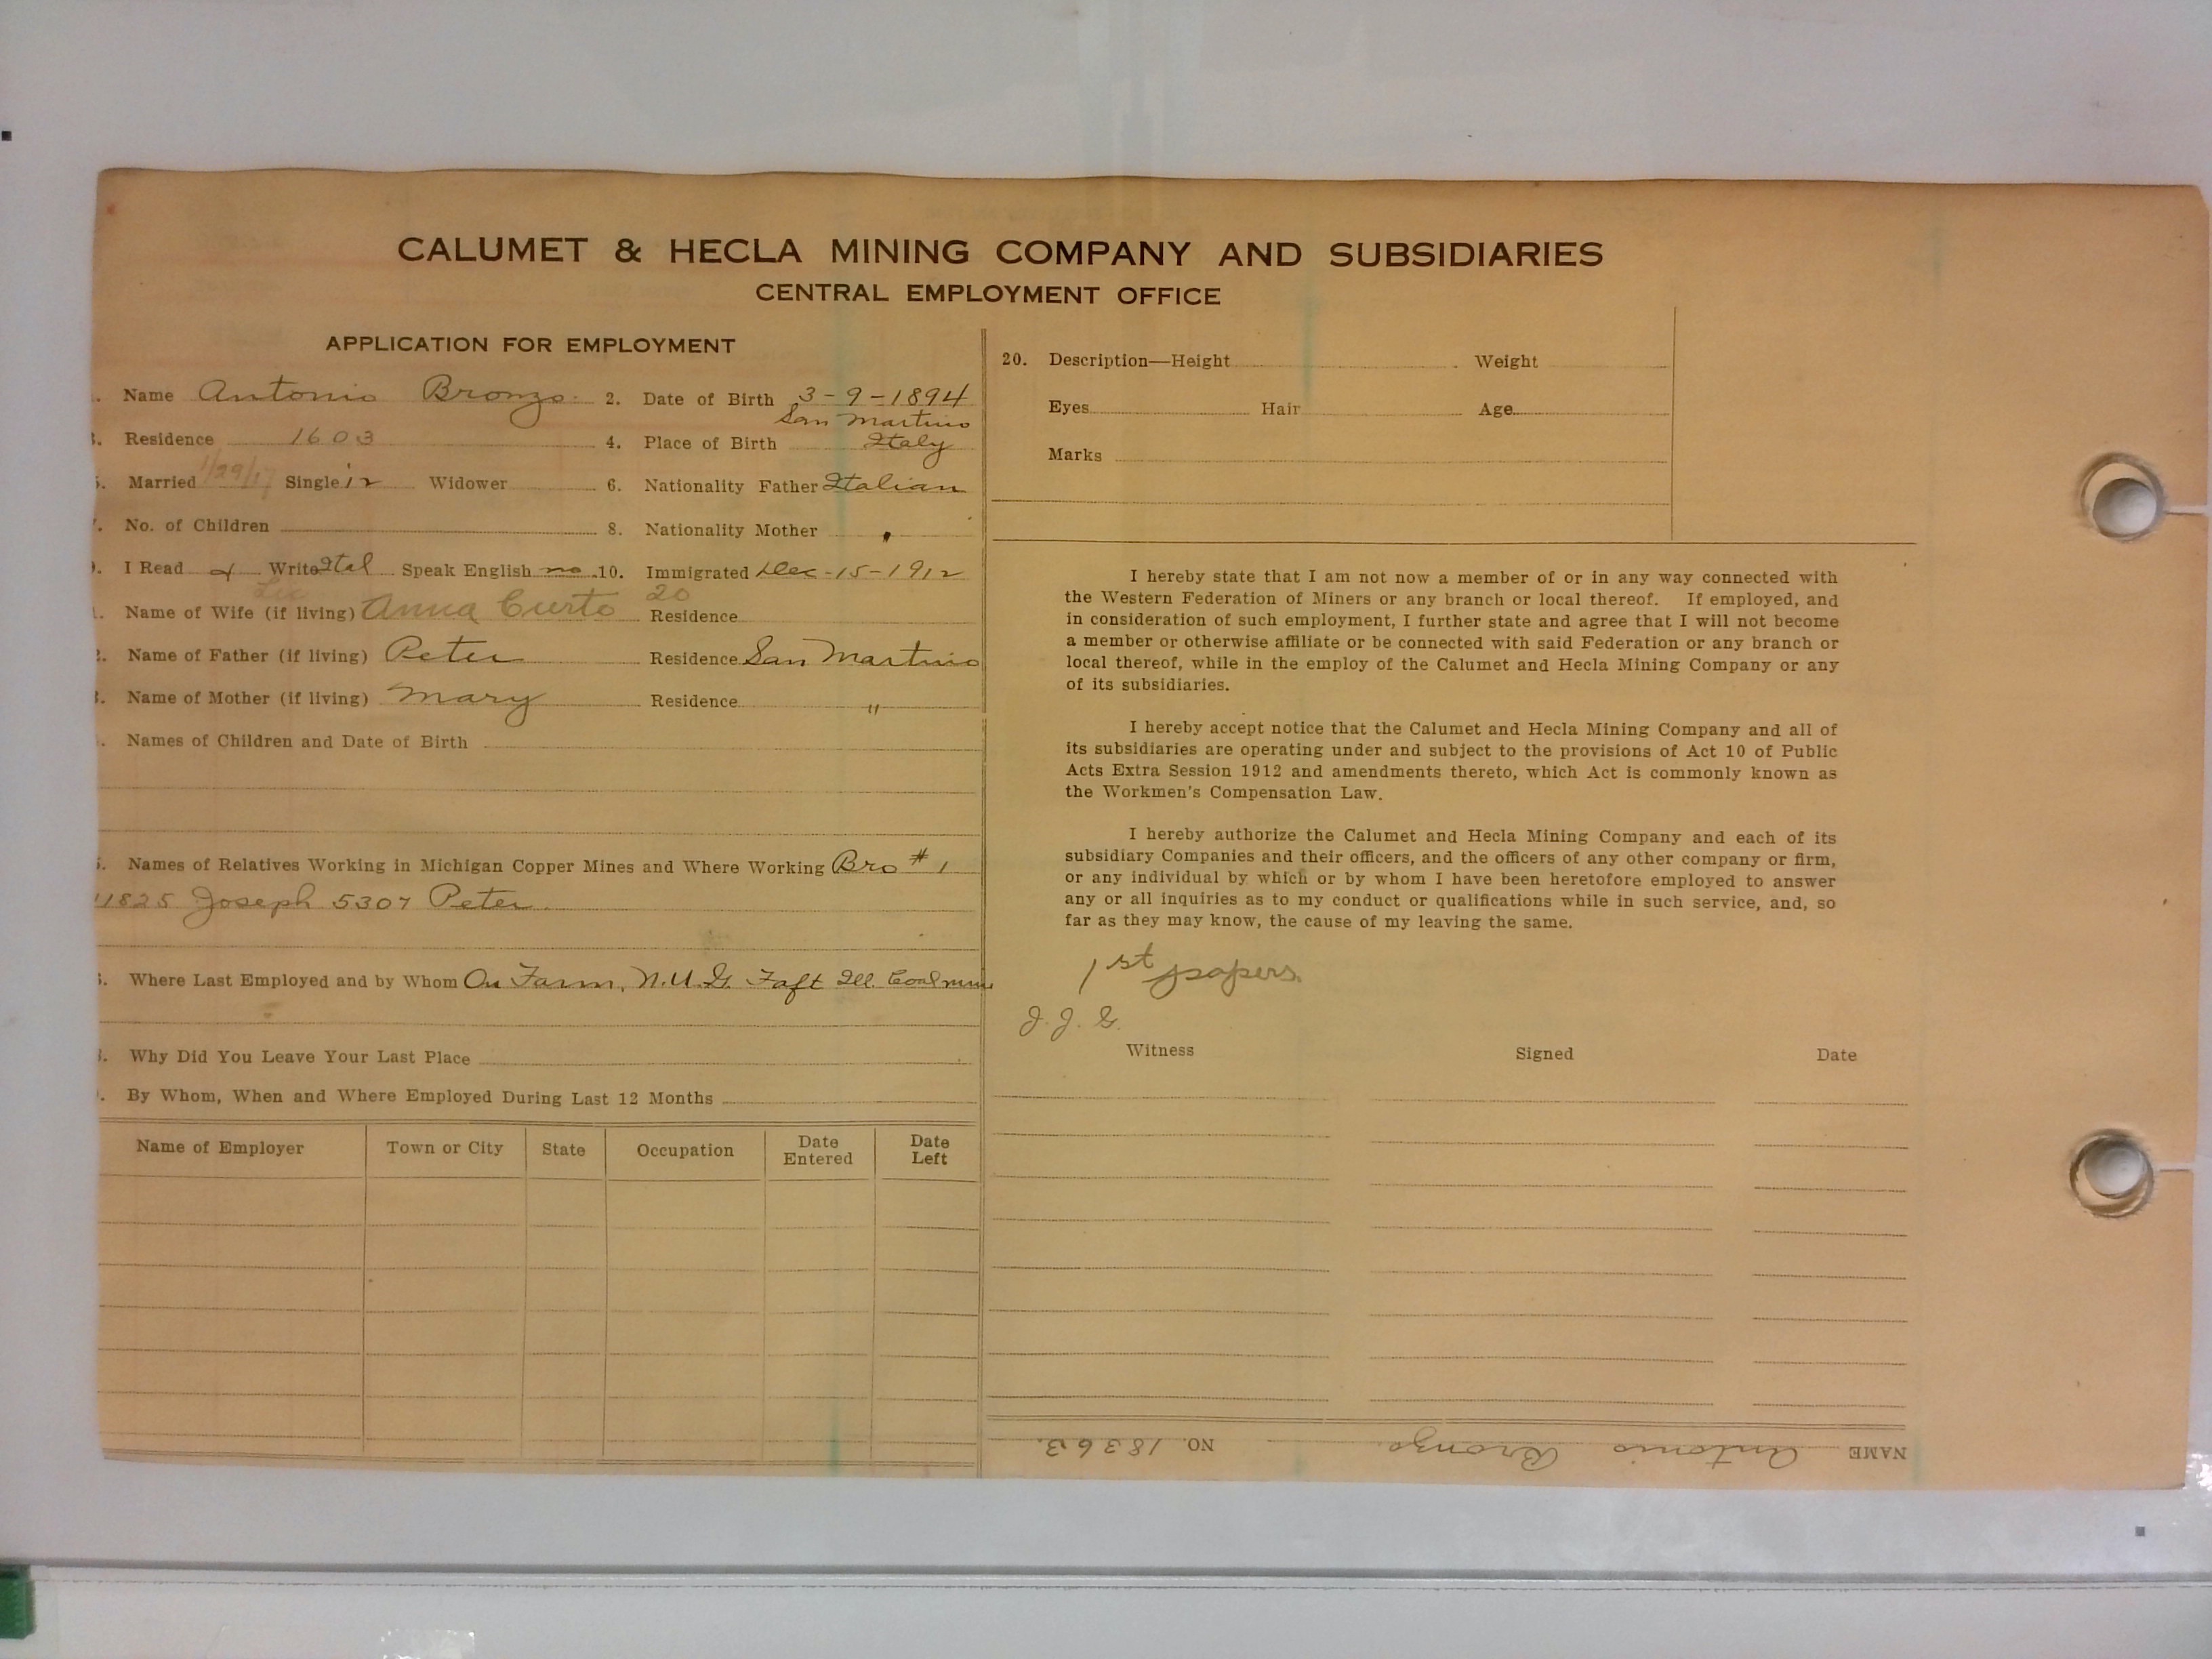 CALUMET & HECLA MINING COMPANY AND SUBSIDIARIES
CENTRAL EMPLOYMENT OFFICE
APPLICATION FOR EMPLOYMENT
Name Antonio Bronzo 2. Date of Birth 3-9-1894
San Martino
Residence 1603 4. Place of Birth Italy
Married 1/29/17 Single Widower 6. Nationality Father Italian
No. of Children 8. Nationality Mother "
I Read & Write Ital Speak English no 10. Immigrated Dec-15-1912
20
Name of Wife (if living) Anna Curto Residence
Name of Father (if living) Peter Residence San Martino
Name of Mother (if living) Mary Residence "
Names of Children and Date of Birth
Names of Relatives Working in Michigan Copper Mines and Where Working Bro # 1
11825 Joseph 5307 Peter
Where Last Employed and by Whom On Farm, N.U.G. Taft Ill. Coal mine
Why Did You Leave Your Last Place
By Whom, When and Where Employed During Last 12 Months
Name of Employer Town or City State Occupation Date Entered Date Left
20. Description—Height Weight
Eyes Hair Age
Marks
I hereby state that I am not now a member of or in any way connected with
the Western Federation of Miners or any branch or local thereof. If employed, and
in consideration of such employment, I further state and agree that I will not become
a member or otherwise affiliate or be connected with said Federation or any branch or
local thereof, while in the employ of the Calumet and Hecla Mining Company or any
of its subsidiaries.
I hereby accept notice that the Calumet and Hecla Mining Company and all of
its subsidiaries are operating under and subject to the provisions of Act 10 of Public
Acts Extra Session 1912 and amendments thereto, which Act is commonly known as
the Workmen's Compensation Law.
I hereby authorize the Calumet and Hecla Mining Company and each of its
subsidiary Companies and their officers, and the officers of any other company or firm,
or any individual by which or by whom I have been heretofore employed to answer
any or all inquiries as to my conduct or qualifications while in such service, and, so
far as they may know, the cause of my leaving the same.
1st papers
J. J. G.
Witness Signed Date
NAME Antonio Bronzo NO. 18363.